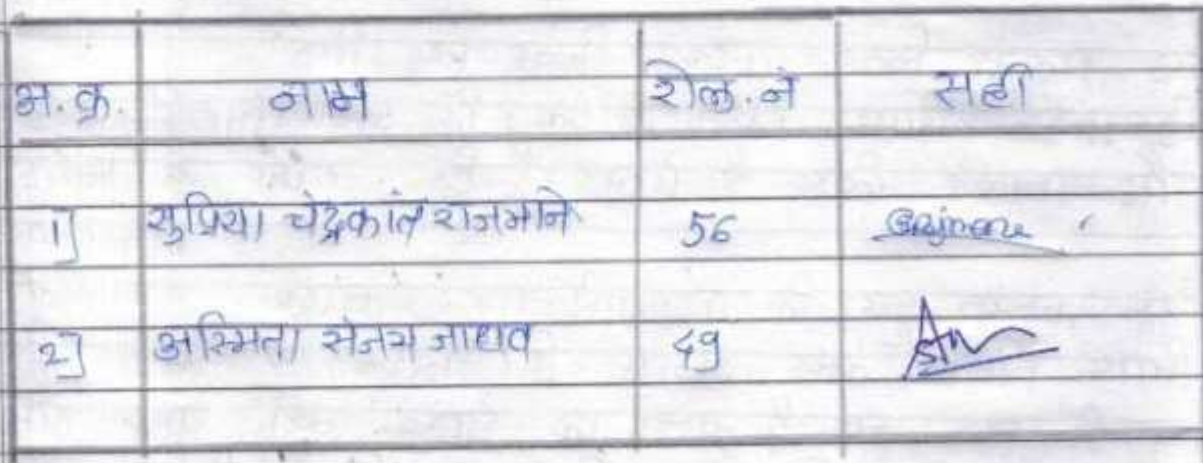 अ.क्र. नाम रोल.नं सही
1] सुप्रिया चंद्रकांत राजमाने 56 Rajmane
2] अस्मिता संजय जाधव 49